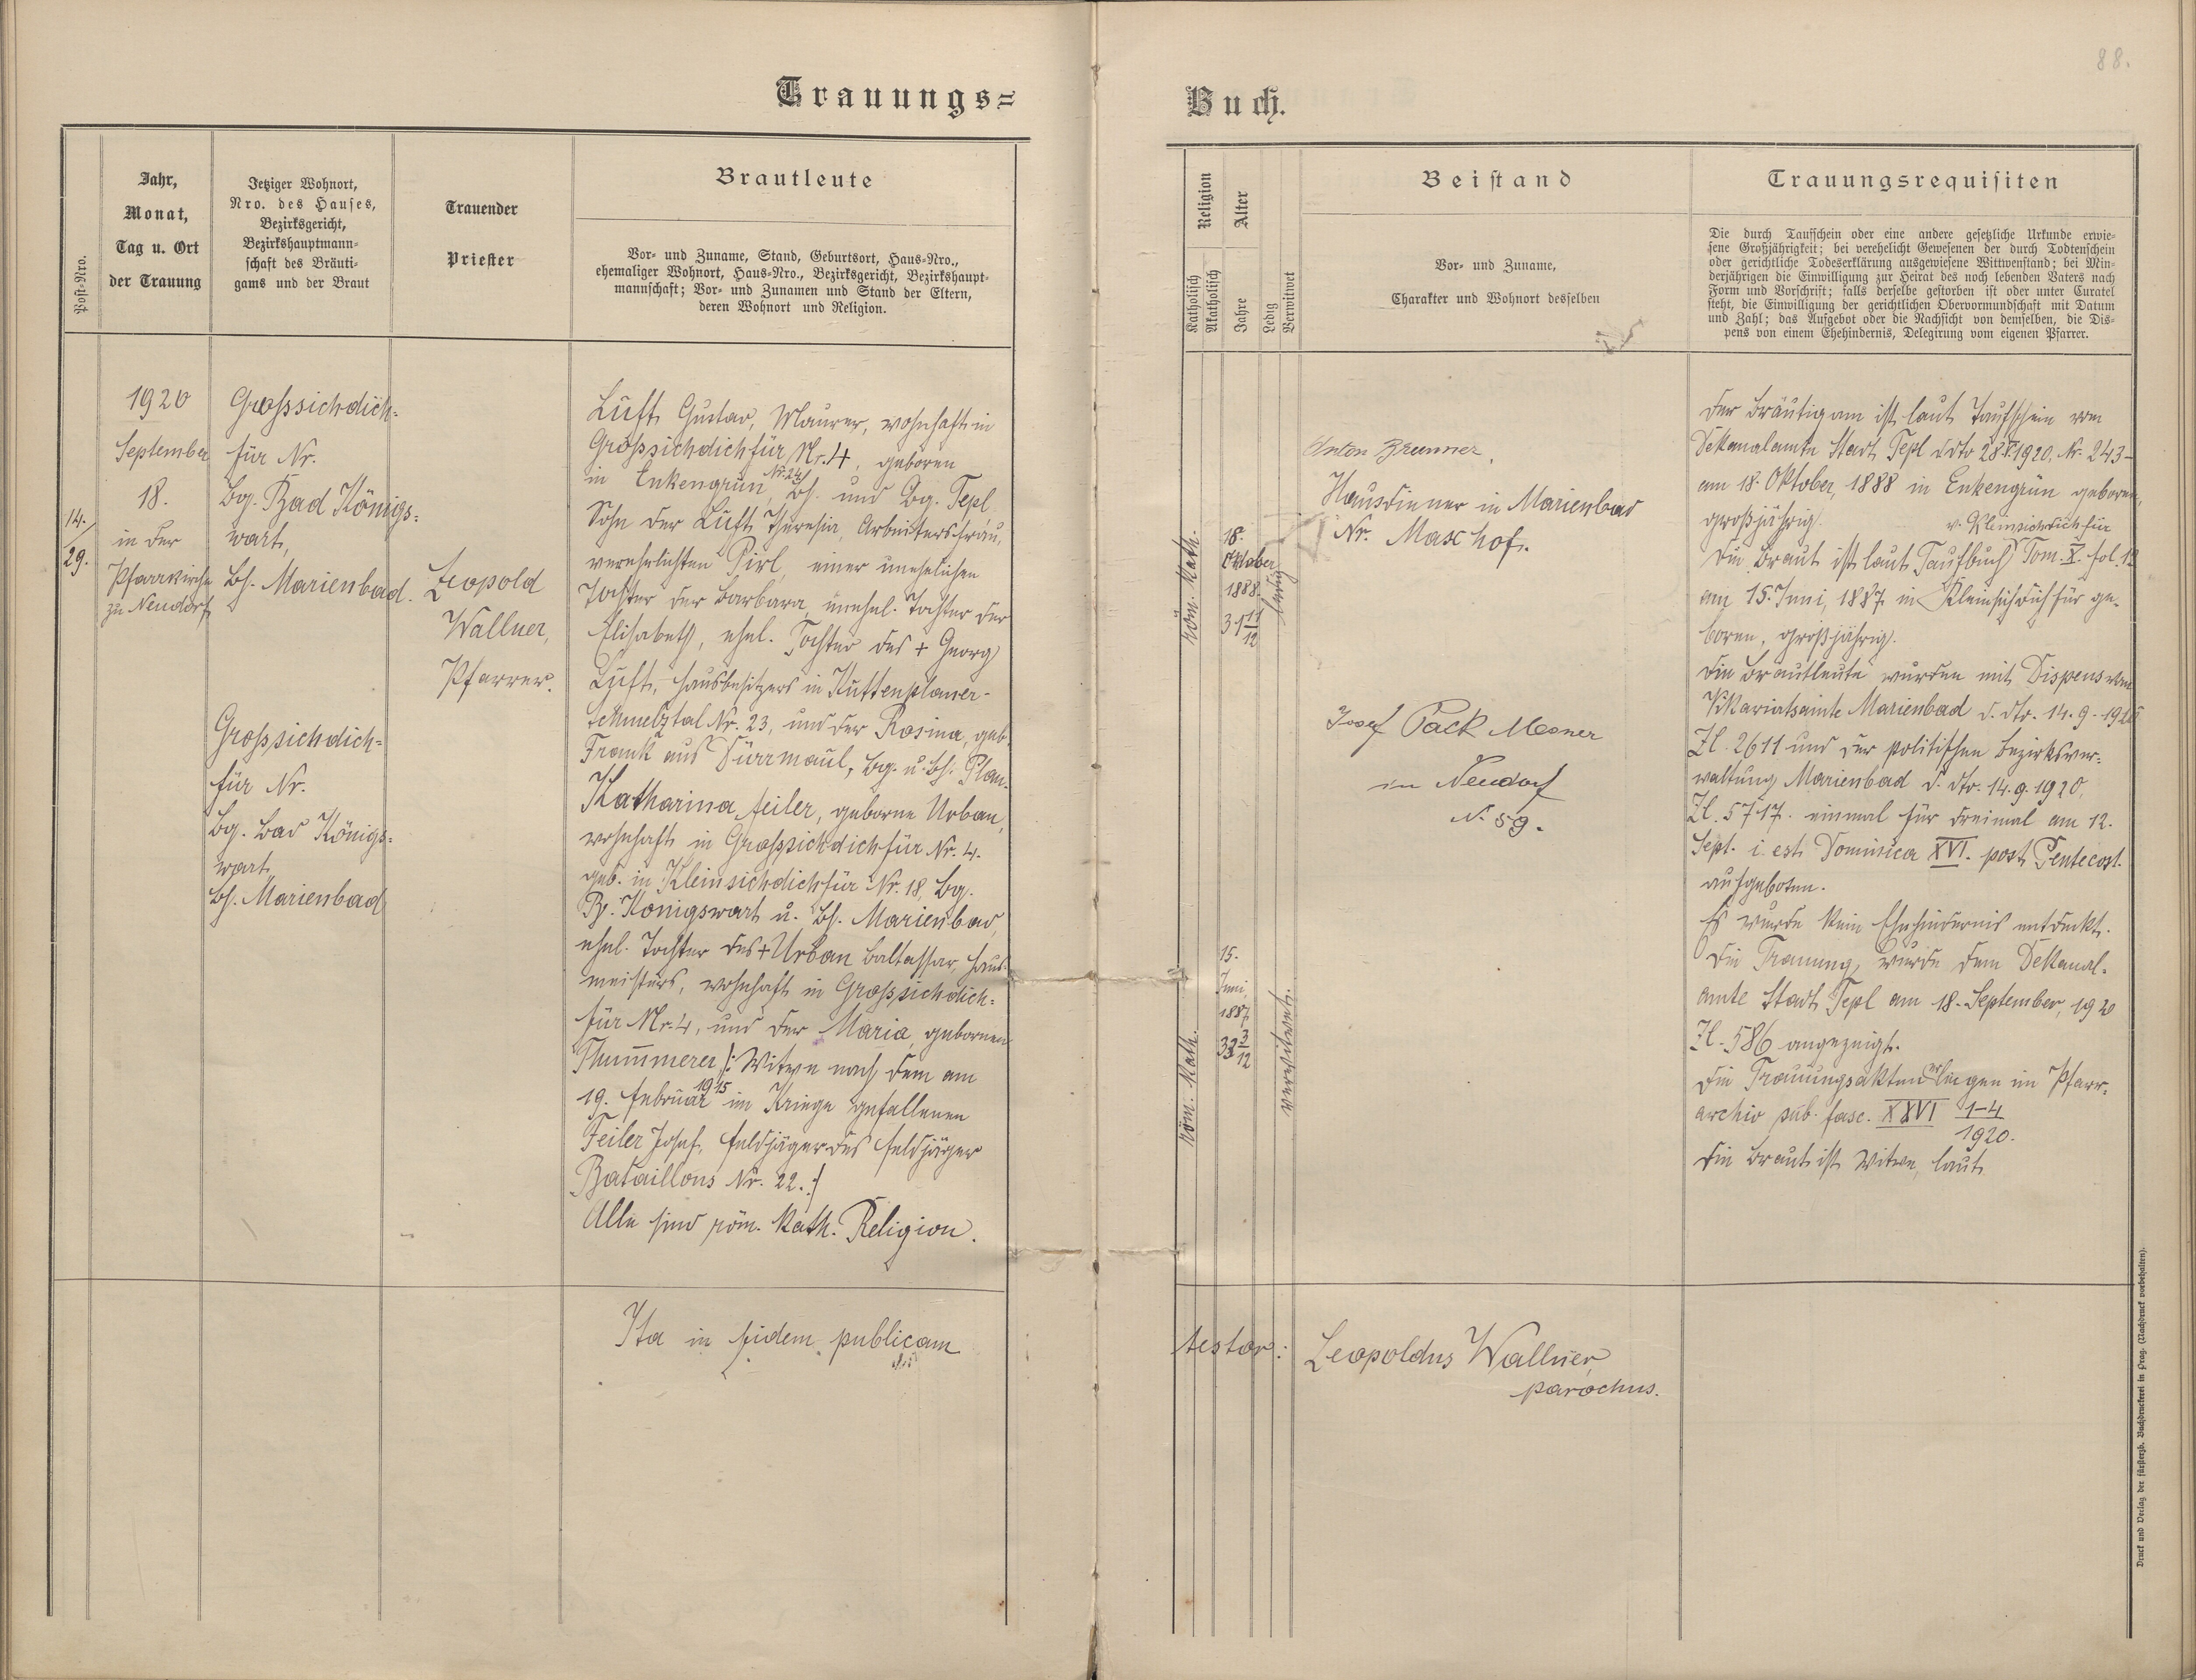 88.
Trauungs=
Buch.
Post-Nro.
Jahr,
Monat,
Tag u. Ort
der Trauung
Jetziger Wohnort,
Nro. des Hauses,
Bezirksgericht,
Bezirkshauptmann=
schaft des Bräuti=
gams und der Braut
Trauender
Priester
Brautleute
Vor- und Zuname, Stand, Geburtsort, Haus-Nro.,
ehemaliger Wohnort, Haus-Nro., Bezirksgericht, Bezirkshaupt-
mannschaft; Vor- und Zunamen und Stand der Eltern,
deren Wohnort und Religion.
14.
29.
1920
September
18.
in der
Pfarrkirche
zu Neudorf
Grossichdich=
für Nr.
Bg. Bad Königs=
wart,
Bh. Marienbad.
Grossichdich=
für Nr.
Bg. Bad Königs=
wart,
Bh. Marienbad
Leopold
Wallner,
Pfarrer.
Luft Gustav, Maurer, wohnhaft in
Grossichdichfür Nr. 4, geboren
in Enkengrün Nr. 24, Bh. und Bg. Tepl
Sohn der Luft Theresia, Arbeitersfrau,
verehelichten Pirl, einer unehelichen
Tochter der Barbara, unehel. Tochter der
Elisabeth, ehel. Tochter des + Georg
Luft, Hausbesitzers in Kuttenplaner-
schmelztal Nr. 23, und der Rosina, geb.
Frank aus Dürrmaul, Bg. u. Bh. Plan.
Katharina Feiler, geborne Urban,
wohnhaft in Grossichdichfür Nr. 4.
geb. in Kleinsichdichfür Nr. 18, Bg.
B. Königswart u. Bh. Marienbad,
ehel. Tochter des + Urban Baltassar, Haus-
meisters, wohnhaft in Grossichdich=
für Nr. 4, und der Maria, gebornen
Thummerer /: Witwe nach dem am
19. Februar 1915 im Kriege gefallenen
Feiler Josef, Feldjäger des Feldjäger
Bataillons Nr. 22. :/
Alle sind röm. kath. Religion.
Ita in fidem publicam
Religion
Katholisch
Akatholisch
Alter
Jahre
Ledig
Verwitwet
Beistand
Vor- und Zuname,
Charakter und Wohnort desselben
Trauungsrequisiten
Die durch Taufschein oder eine andere gesetzliche Urkunde erwie-
sene Großjährigkeit; bei verehelicht Gewesenen der durch Todtenschein
oder gerichtliche Todeserklärung ausgewiesene Wittwenstand; bei Min-
derjährigen die Einwilligung zur Heirat des noch lebenden Vaters nach
Form und Vorschrift; falls derselbe gestorben ist oder unter Curatel
steht, die Einwilligung der gerichtlichen Obervormundschaft mit Datum
und Zahl; das Aufgebot oder die Nachsicht von demselben, die Dis-
pens von einem Ehehindernis, Delegirung vom eigenen Pfarrer.
Röm. Kath.
18.
Oktober
1888.
31 11/12
ledig
Röm. Kath.
15.
Juni
1887
33 3/12
verwitwet.
Anton Brunner,
Hausdiener in Marienbad
Nr. Max hof.
Josef Pack Mesner
in Neudorf
N. 59.
Der Bräutigam ist laut Taufschein vom
Dekanalamte Stadt Tepl ddto 28. 1920. Nr. 243-
am 18. Oktober, 1888 in Enkengrün geboren,
großjährig.
v. Kleinsichdichfür
Die Braut ist laut Taufbuch Tom. X. fol. 12
am 15. Juni, 1887 in Kleinsichdichfür ge-
boren, großjährig.
Die Brautleute wurden mit Dispens vom
Vikariatsamte Marienbad d. dto. 14.9.1920
Zl. 2611 und der politischen Bezirksver=
waltung Marienbad d. dto. 14.9.1920,
Zl. 5717. einmal für dreimal am 12.
Sept. i. est Dominica XVI. post Pentecost.
aufgeboten.
Es wurde kein Ehehindernis entdeckt.
Die Trauung wurde dem Dekanal-
amte Stadt Tepl am 18. September, 1920
Zl. 586 angezeigt.
Die Trauungsakten erliegen im Pfarr-
archiv sub. fasc. XXVI 1-4
1920.
Die Braut ist Witwe, laut
testor:
Leopoldus Wallner,
parochus.
Druck und Verlag der fürsterzb. Buchdruckerei in Prag. (Nachdruck vorbehalten).